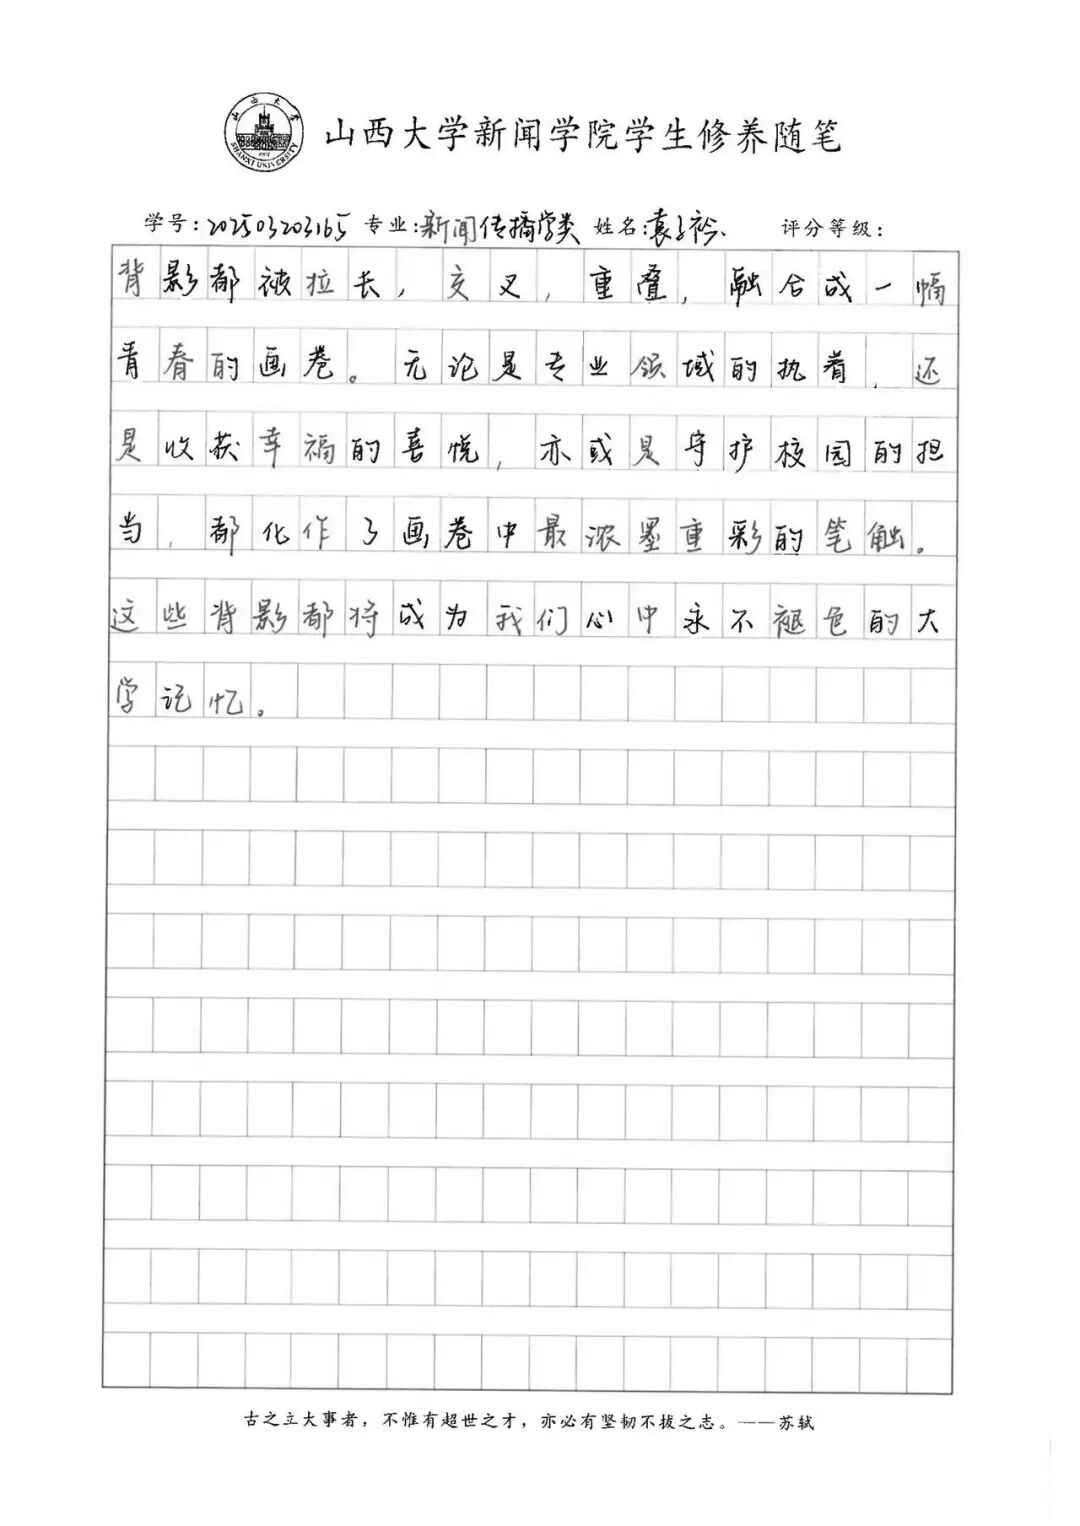 山西大学
SHANXI UNIVERSITY
1902
山西大学新闻学院学生修养随笔
学号:202503203165 专业:新闻传播学类 姓名:袁子衿 评分等级:
背影都被拉长,交叉,重叠,融合成一幅
青春的画卷。无论是专业领域的执着,还
是收获幸福的喜悦,亦或是守护校园的担
当,都化作了画卷中最浓墨重彩的笔触。
这些背影都将成为我们心中永不褪色的大
学记忆。
古之立大事者,不惟有超世之才,亦必有坚韧不拔之志。——苏轼